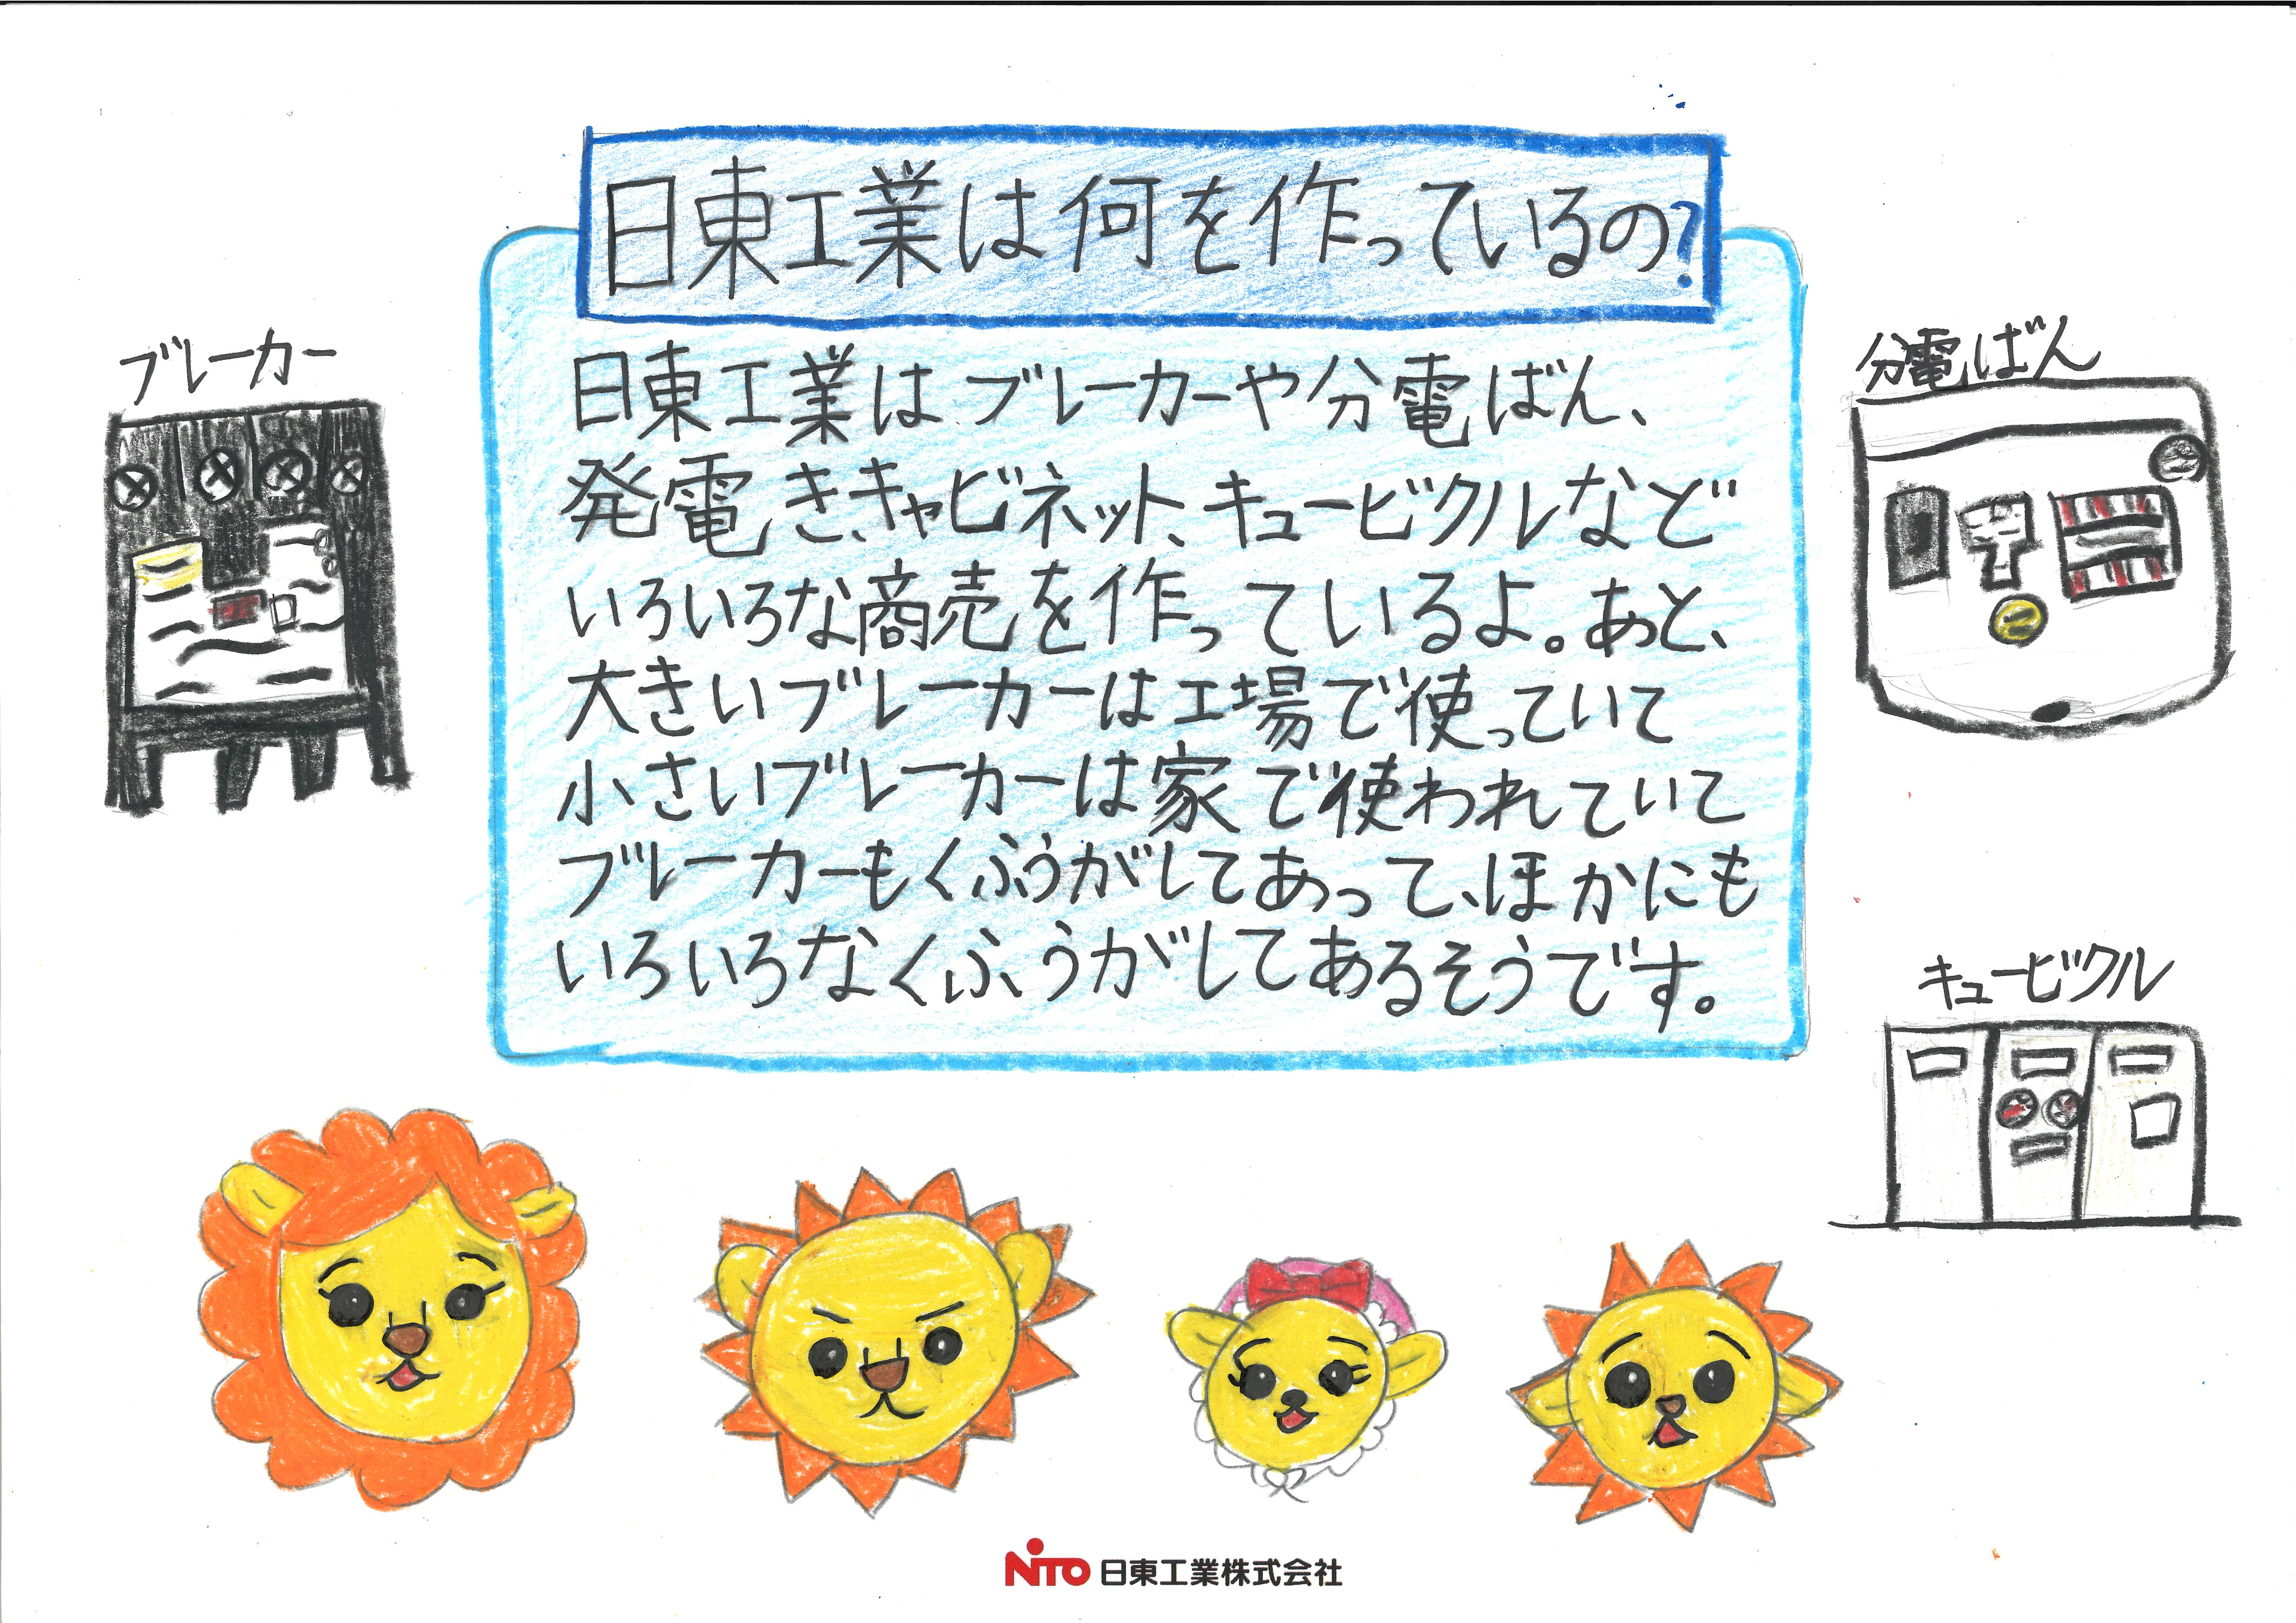 日東工業は何を作っているの?
ブレーカー
分電ばん
日東工業はブレーカーや分電ばん、
発電き、キャビネット、キュービクルなど
いろいろな商売を作っているよ。あと、
大きいブレーカーは工場で使っていて
小さいブレーカーは家で使われていて
ブレーカーもくふうがしてあって、ほかにも
いろいろなくふうがしてあるそうです。
キュービクル
NITO 日東工業株式会社